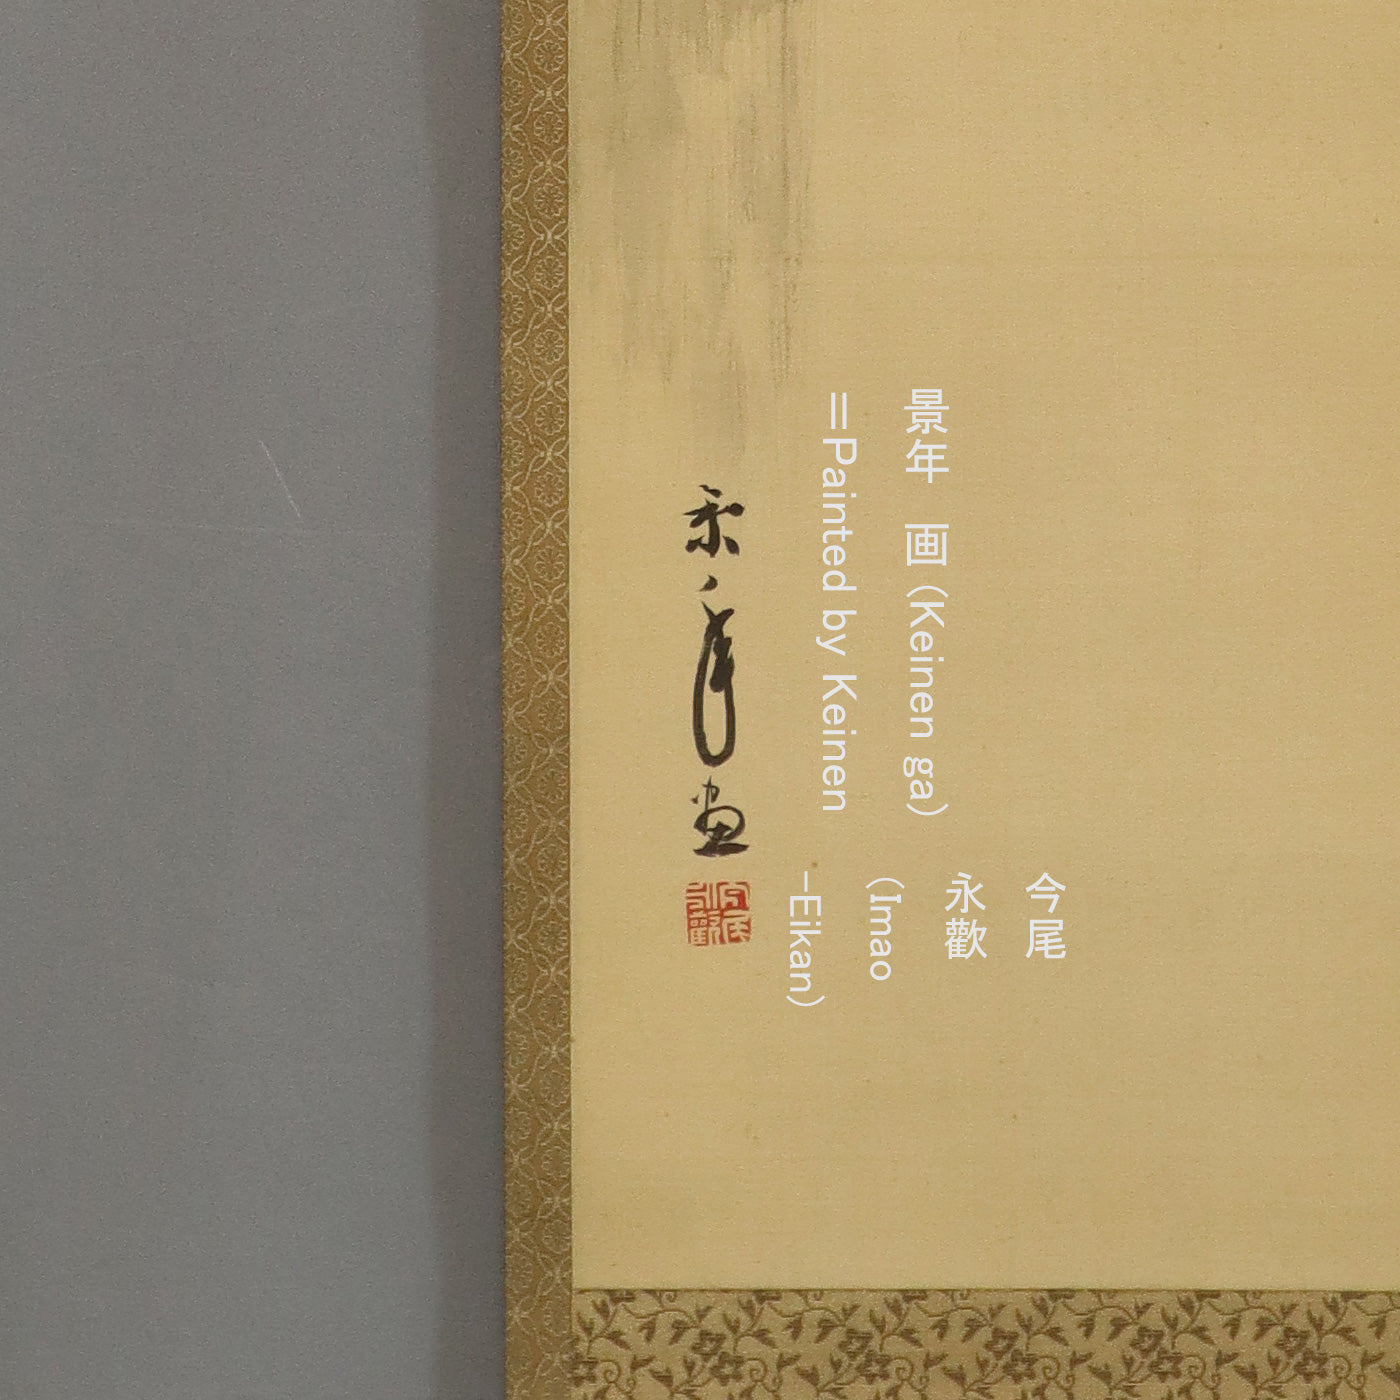 景年 画 (Keinen ga)
=Painted by Keinen
景年画
今尾
永歡
(Imao
-Eikan)